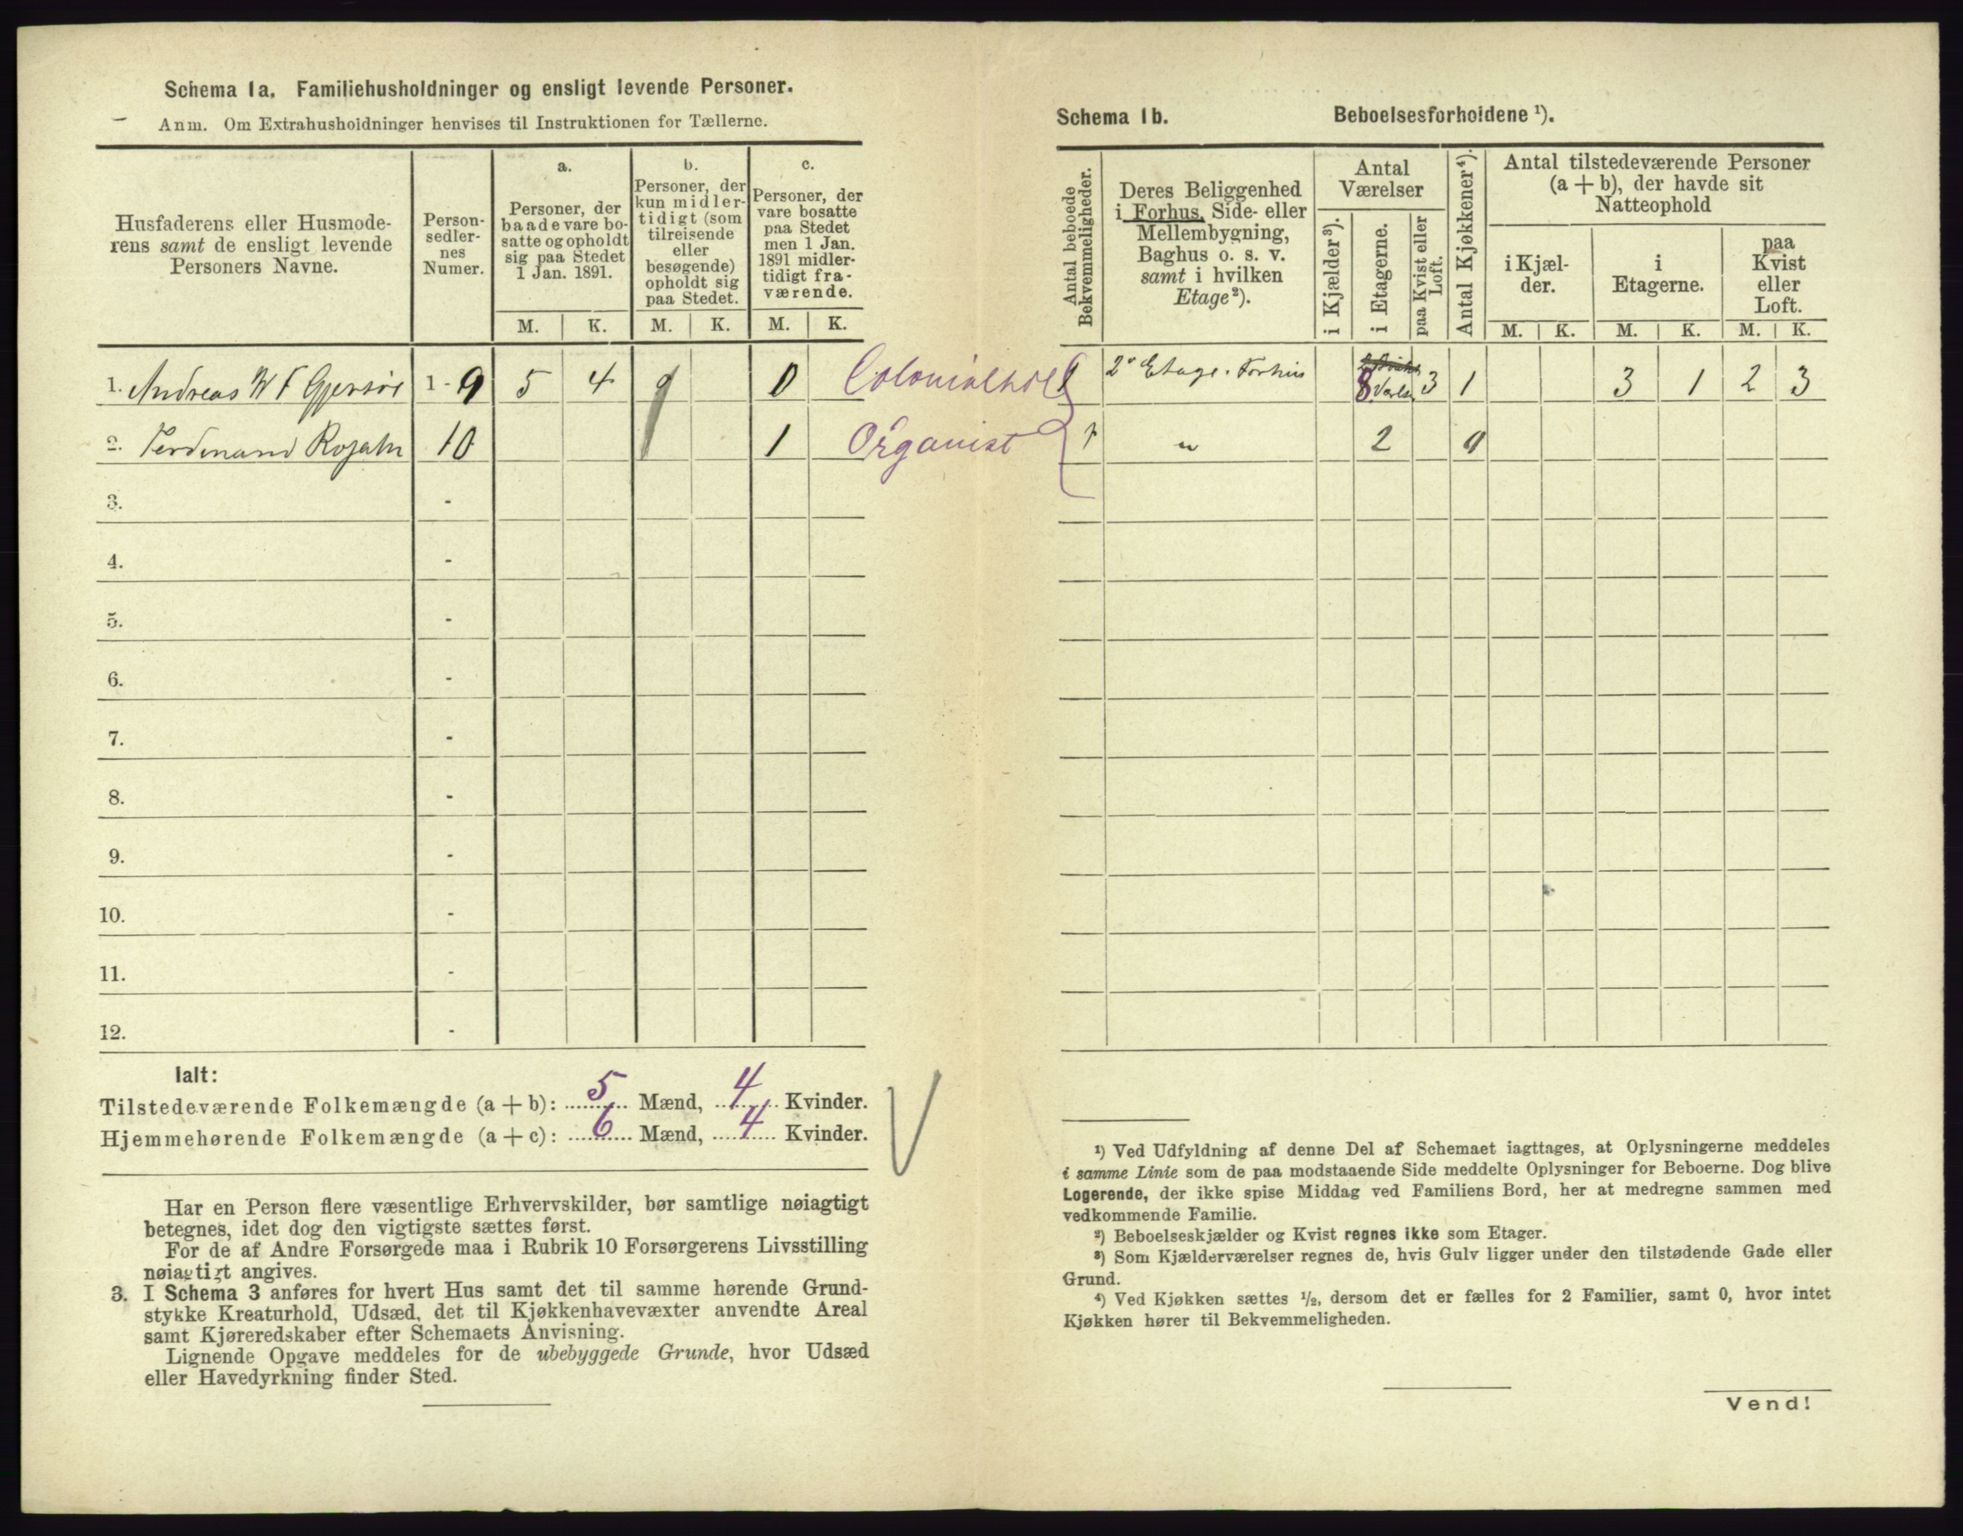 Schema 1a. Familiehusholdninger og ensligt levende Personer.
Anm. Om Extrahusholdninger henvises til Instruktionen for Tællerne.
Husfaderens eller Husmode-
rens samt de ensligt levende
Personers Navne.
Person-
sedler-
nes
Numer.
a.
Personer, der
baade vare bo-
satte og opholdt
sig paa Stedet
1 Jan. 1891.
b.
Personer, der
kun midler-
tidigt (som
tilreisende
eller
besøgende)
opholdt sig
paa Stedet.
c.
Personer, der
vare bosatte
paa Stedet
men 1 Jan.
1891 midler-
tidigt fra-
værende.
M. K. M. K. M. K.
1. Andreas W F Gjersøe 1 - 9 5 4 0 Colonialhdl
2. Ferdinand Rojahn 10 1 Organist
3. -
4. -
5. -
6. -
7. -
8. -
9. -
10. -
11. -
12. -
Ialt:
Tilstedeværende Folkemængde (a + b): 5 Mænd, 4 Kvinder.
Hjemmehørende Folkemængde (a + c): 6 Mænd, 4 Kvinder.
Har en Person flere væsentlige Erhvervskilder, bør samtlige nøiagtigt
betegnes, idet dog den vigtigste sættes først.
For de af Andre Forsørgede maa i Rubrik 10 Forsørgerens Livsstilling
nøiagtigt angives.
3. I Schema 3 anføres for hvert Hus samt det til samme hørende Grund-
stykke Kreaturhold, Udsæd, det til Kjøkkenhavevæxter anvendte Areal
samt Kjøreredskaber efter Schemaets Anvisning.
Lignende Opgave meddeles for de ubebyggede Grunde, hvor Udsæd
eller Havedyrkning finder Sted.
Schema 1b. Beboelsesforholdene ¹).
Antal beboede
Bekvemmeligheder.
Deres Beliggenhed
i Forhus, Side- eller
Mellembygning,
Baghus o. s. v.
samt i hvilken
Etage²).
Antal
Værelser
i Kjælder³).
i Etagerne.
paa Kvist eller
Loft.
Antal Kjøkkener⁴).
Antal tilstedeværende Personer
(a + b), der havde sit
Natteophold
i Kjæl-
der.
i
Etagerne.
paa
Kvist
eller
Loft.
M. K. M. K. M. K.
1 2' Etage. Forhus 8 3 1 3 1 2 3
1 " 2 0
¹) Ved Udfyldning af denne Del af Schemaet iagttages, at Oplysningerne meddeles
i samme Linie som de paa modstaaende Side meddelte Oplysninger for Beboerne. Dog blive
Logerende, der ikke spise Middag ved Familiens Bord, her at medregne sammen med
vedkommende Familie.
²) Beboelseskjælder og Kvist regnes ikke som Etager.
³) Som Kjælderværelser regnes de, hvis Gulv ligger under den tilstødende Gade eller
Grund.
⁴) Ved Kjøkken sættes ½, dersom det er fælles for 2 Familier, samt 0, hvor intet
Kjøkken hører til Bekvemmeligheden.
Vend!